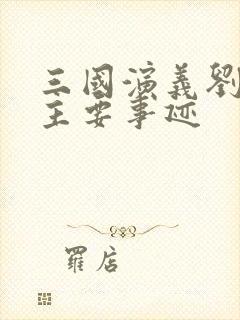 三國演義劉
主要事迹
羅店